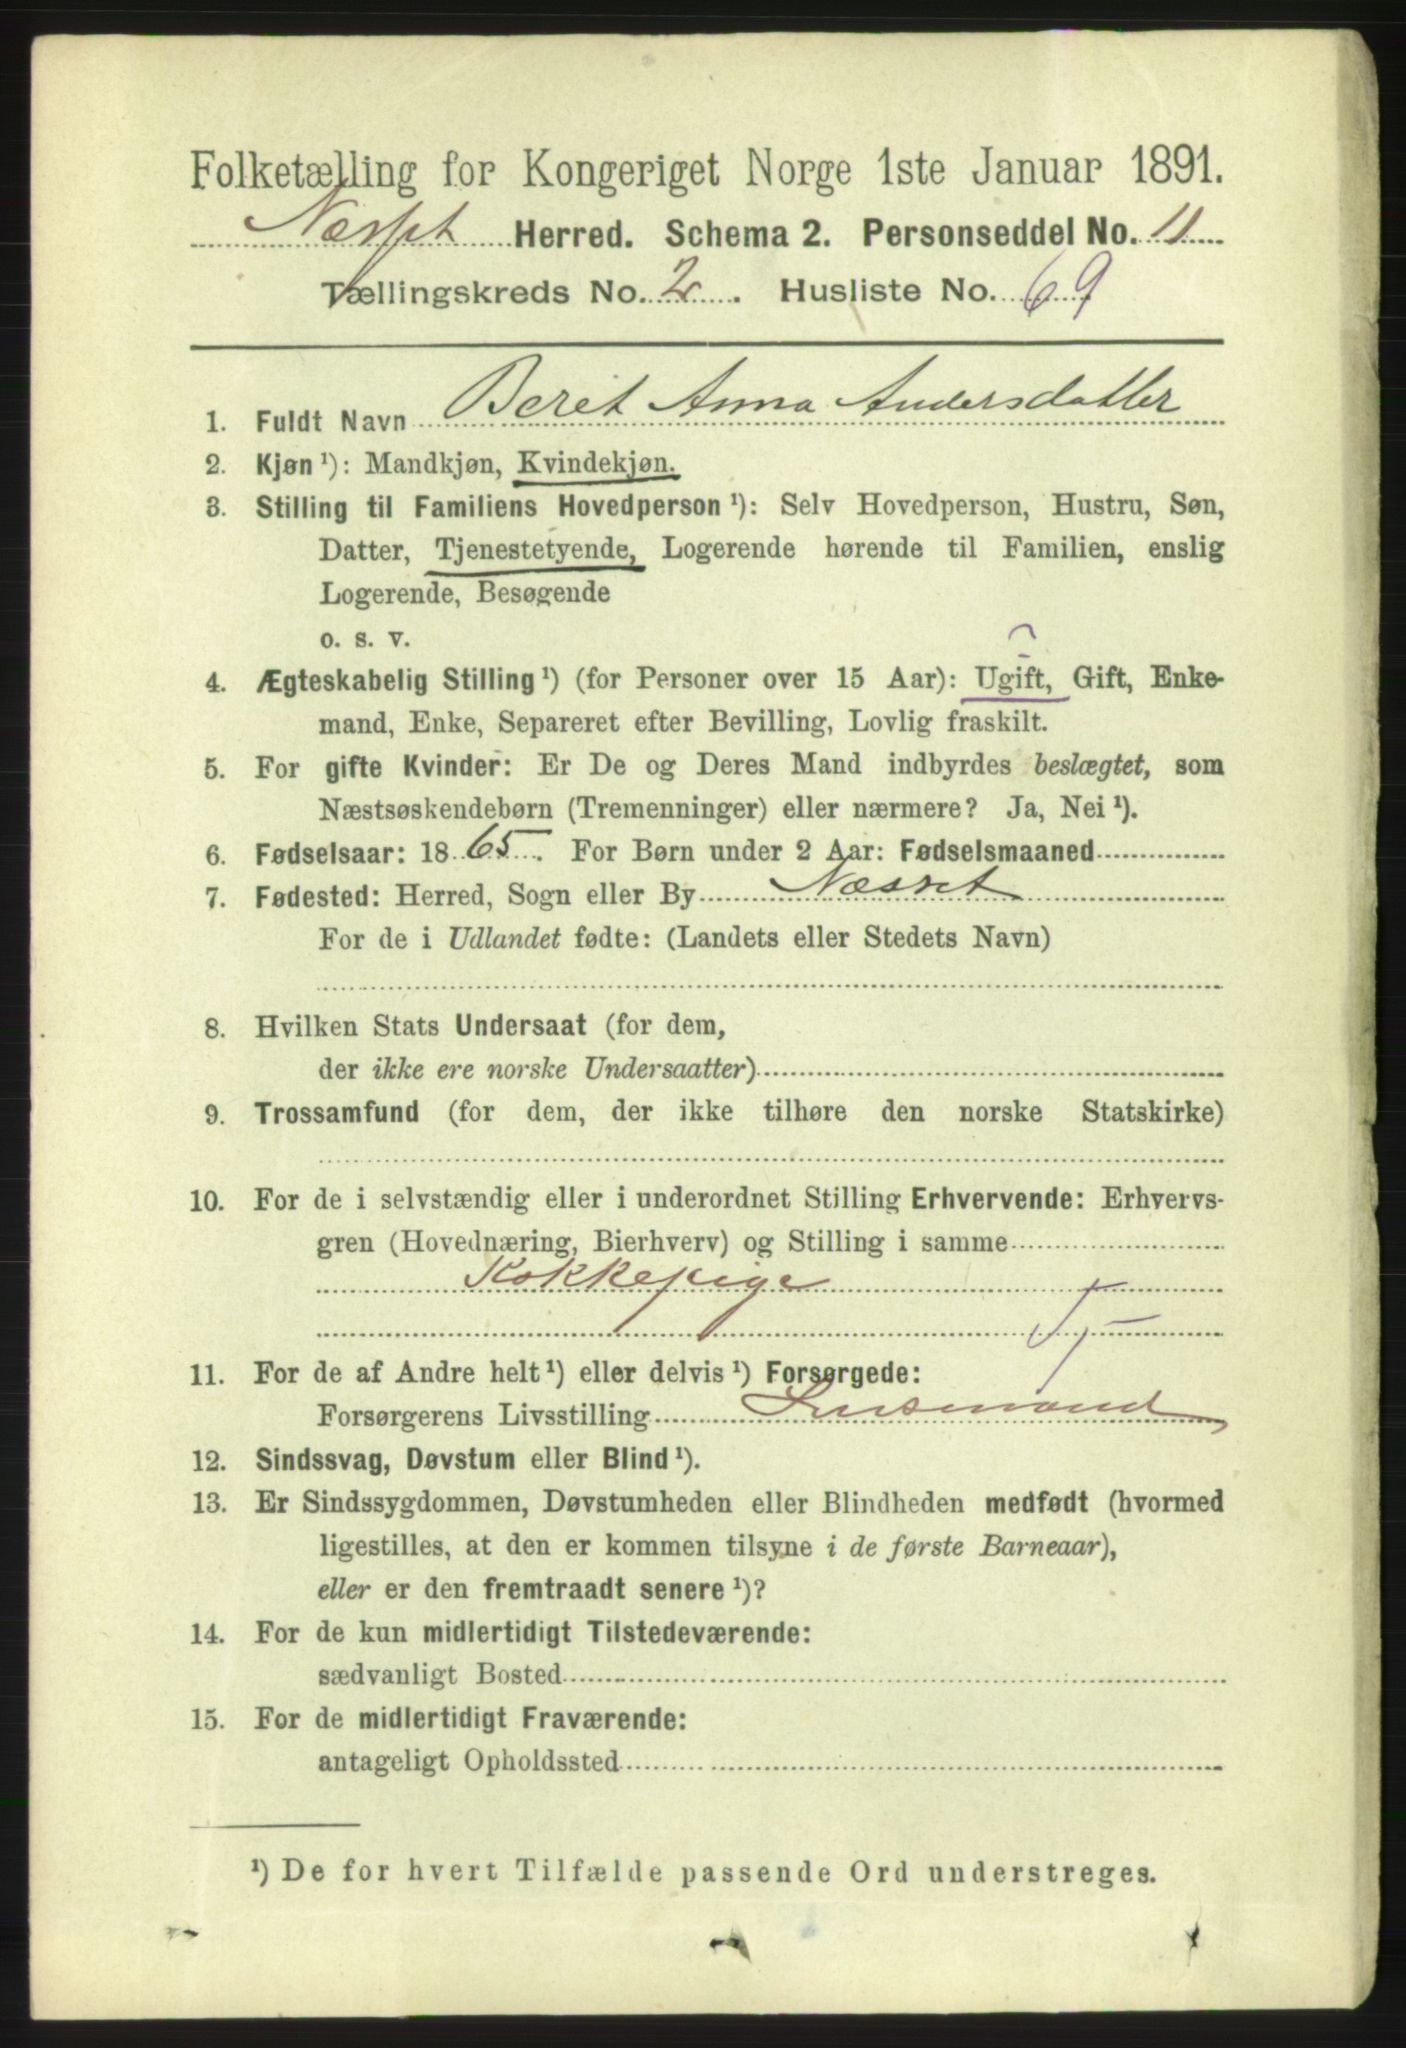 Folketælling for Kongeriget Norge 1ste Januar 1891.
Næsset Herred. Schema 2. Personseddel No. 11
Tællingskreds No. 2. Husliste No. 69
1. Fuldt Navn Beret Anna Andersdatter
2. Kjøn ¹): Mandkjøn, Kvindekjøn.
3. Stilling til Familiens Hovedperson ¹): Selv Hovedperson, Hustru, Søn,
Datter, Tjenestetyende, Logerende hørende til Familien, enslig
Logerende, Besøgende
o. s. v.
4. Ægteskabelig Stilling ¹) (for Personer over 15 Aar): Ugift, Gift, Enke-
mand, Enke, Separeret efter Bevilling, Lovlig fraskilt.
5. For gifte Kvinder: Er De og Deres Mand indbyrdes beslægtet, som
Næstsøskendebørn (Tremenninger) eller nærmere? Ja, Nei ¹).
6. Fødselsaar: 1865. For Børn under 2 Aar: Fødselsmaaned
7. Fødested: Herred, Sogn eller By Næsset
For de i Udlandet fødte: (Landets eller Stedets Navn)
8. Hvilken Stats Undersaat (for dem,
der ikke ere norske Undersaatter)
9. Trossamfund (for dem, der ikke tilhøre den norske Statskirke)
10. For de i selvstændig eller i underordnet Stilling Erhvervende: Erhvervs-
gren (Hovednæring, Bierhverv) og Stilling i samme
Kokkepige
Tj
11. For de af Andre helt ¹) eller delvis ¹) Forsørgede:
Forsørgerens Livsstilling Lensmand
12. Sindssvag, Døvstum eller Blind ¹).
13. Er Sindssygdommen, Døvstumheden eller Blindheden medfødt (hvormed
ligestilles, at den er kommen tilsyne i de første Barneaar),
eller er den fremtraadt senere ¹)?
14. For de kun midlertidigt Tilstedeværende:
sædvanligt Bosted
15. For de midlertidigt Fraværende:
antageligt Opholdssted
¹) De for hvert Tilfælde passende Ord understreges.